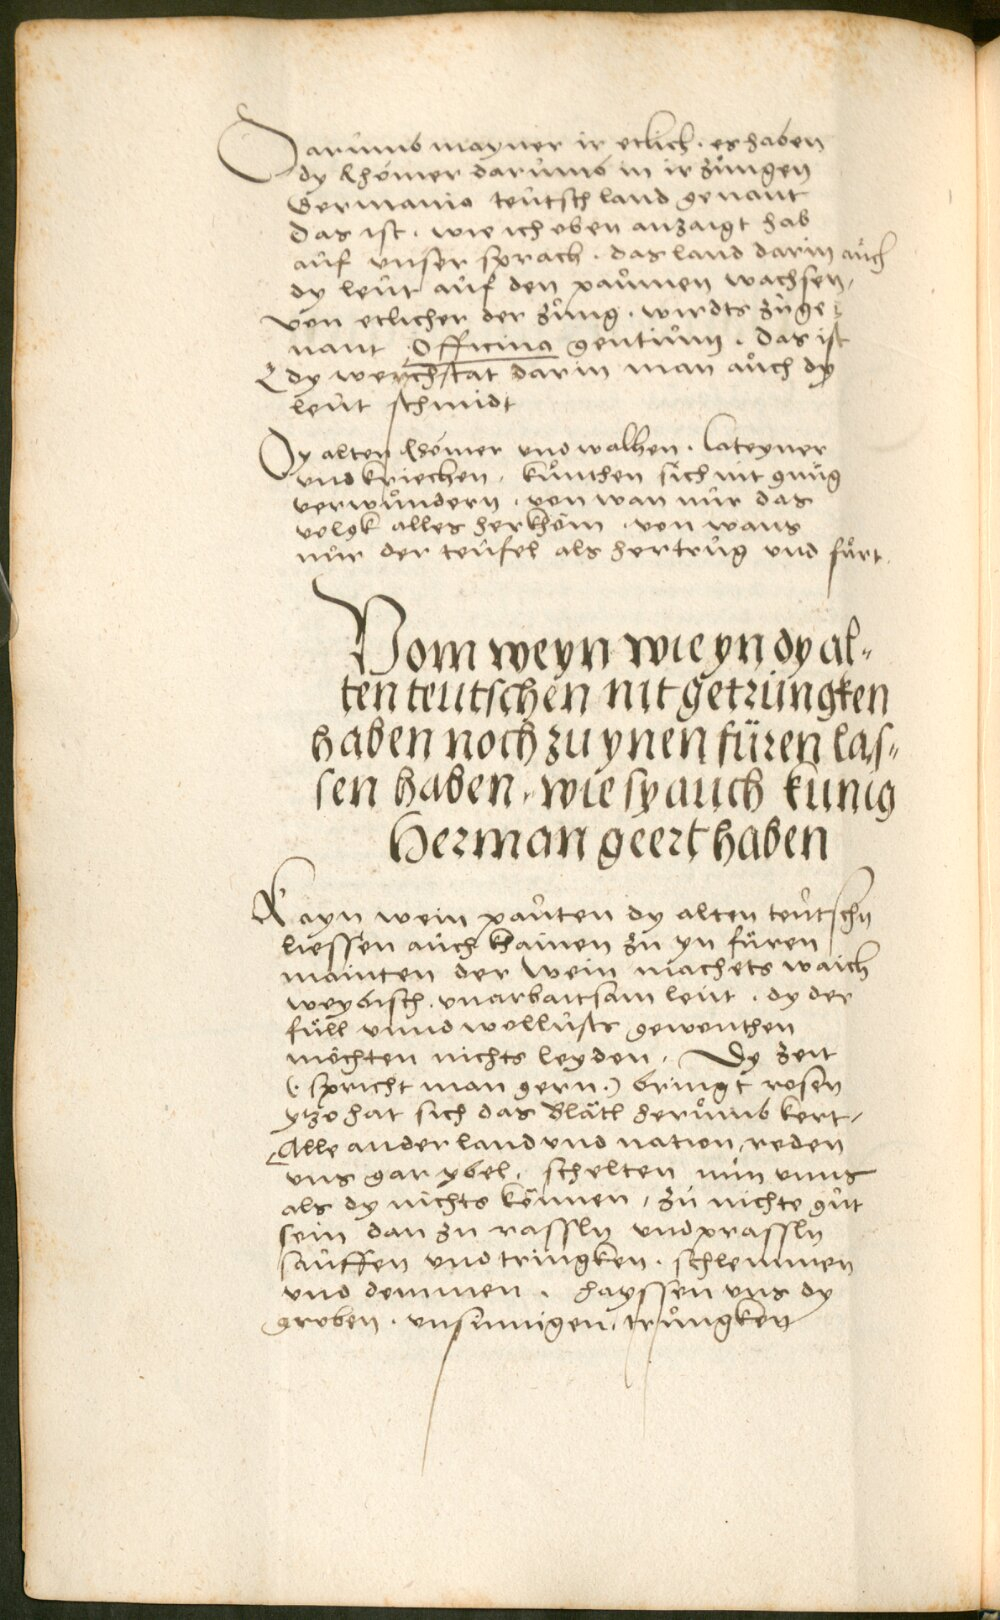 Darumb mayner ir etlich · es haben
dy Rhömer darumb in ir zungen
Germania teutschland genant
das ist · wie ich oben anzaigt hab
auf unser sprach · das land darin auch
dy leut auf den paumen wachsen ·
Von etlicher der zung · wirdts zuge
nant Officina gentium · das ist
dy werchstat darin man auch dy
leut schmidt
Dy alten Römer und walhen · lateyner
und kriechen · kunthen sich nit gnug
verwundern · von wan nur das
volgk alles herkhöm · von wans
nur der teufel als hertrug und fürt ·
Vom weyn wie yn dy al-
ten teutschen nit getrungken
haben noch zu ynen füren las-
sen haben · wie sy auch kunig
Herman geert haben
Kayn wein pauten dy alten teutschn
liessen auch khainen zu yn füren
mainten der wein machets waich
weybisch · unarbaitsam leut · dy der
füll unnd wollusts gewonthen
möchten nichts leyden · Dy zeit
(· spricht man gern ·) bringt rosen
ytzo hat sich das Blätl herumb kert ·
Alle ander land und nation reden
uns gar ybel · schelten nun unns
als dy nichts können / zu nichte gut
sein dan zu rassln und prassln
sauffen und tringken · schlemmen
und demmen · hayssen uns dy
groben · unsinnigen · trungken